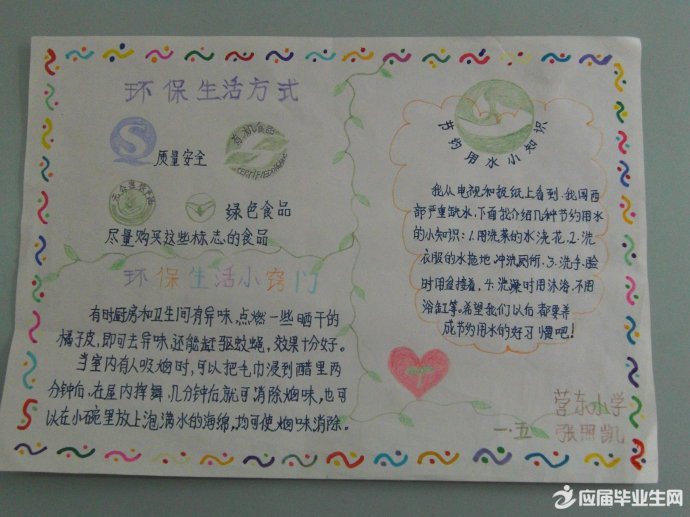 环保生活方式
质量安全
有机食品
绿色食品
尽量购买这些标志的食品
环保生活小窍门
有时厨房和卫生间有异味,点燃一些晒干的
橘子皮,即可去异味,还能驱蚊蝇,效果十分好。
当室内有人吸烟时,可以把毛巾浸到醋里两
分钟后,在屋内挥舞,几分钟后就可消除烟味,也可
以在小碗里放上泡满水的海绵,均可使烟味消除。
节约用水小知识
我从电视和报纸上看到,我国西
部严重缺水,下面我介绍几种节约用水
的小知识:1.用洗菜的水浇花.2.洗
衣服的水拖地 冲洗厕所.3.洗手、脸
时用盆接着.4.洗澡时用沐浴,不用
浴缸等。希望我们以后都要养
成节约用水的好习惯吧!
营东小学
一·五 张照凯
应届毕业生网